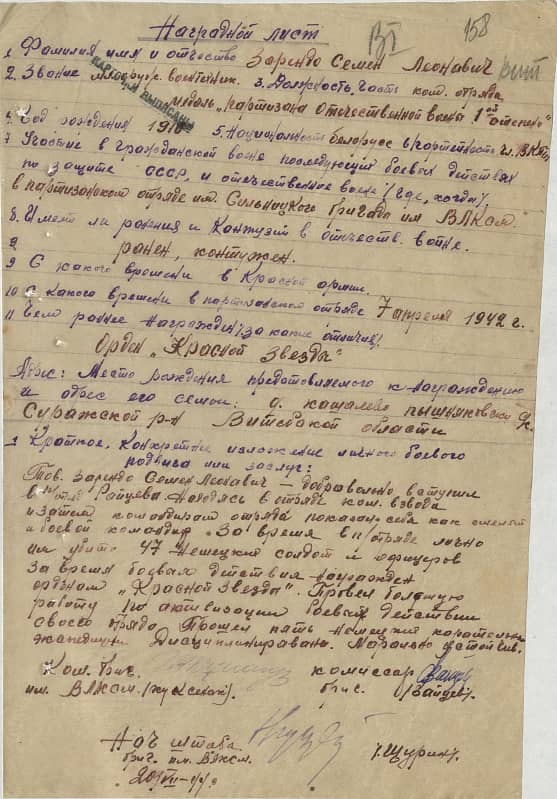 Наградной лист
158
1. Фамилия имя и отчество Зарендо Семен Леонович
2. Звание младш. воентехник. 3. Должность, часть ком. отряда
медаль „Партизана Отечественной войны 1ой степени"
Год рождения 1918 5. Национальность белорусс 6. партийность
7 Участие в гражданской войне последующих боевых действях
по защите СССР и отечественной войне (где, когда).
в партизанском отряде им. Сильницкого бригада им ВЛКСМ.
8. Имеет ли ранения и контузии в отечеств. войне.
ранен, контужен.
9 С какого времени в Красной армии.
10 С какого времени в партизанском отряде 7 апреля 1942 г.
11 Чем ранее награжден, за какие отличия?
Орден „Красной Звезды"
Адрес: Место рождения представляемого к награждению
и адрес его семьи: д.
Суражской р-н Витебской области
Краткое, конкретное изложение личного боевого
подвига или заслуг:
Тов. Зарендо Семен Леонович — добравольно вступил
в п/отряд Райцева. Находясь в отряде ком. взвода
и затем командиром отряда показал себя как смелый
и боевой командир. За время в п/отряде лично
им убито 47 немецких солдат и офицеров
За время боевых действия награжден
орденом „Красной Звезды". Провел большую
работу по активизации боевых действий
своего отряда. Прошел пять немецких карательных
экспедиции Дисциплинирован. Морально устойчив.
Ком. бриг. комиссар
им. ВЛКСМ. бриг. /Зайцев/.
Нач штаба /Щурин/.
бриг. им. ВЛКСМ.